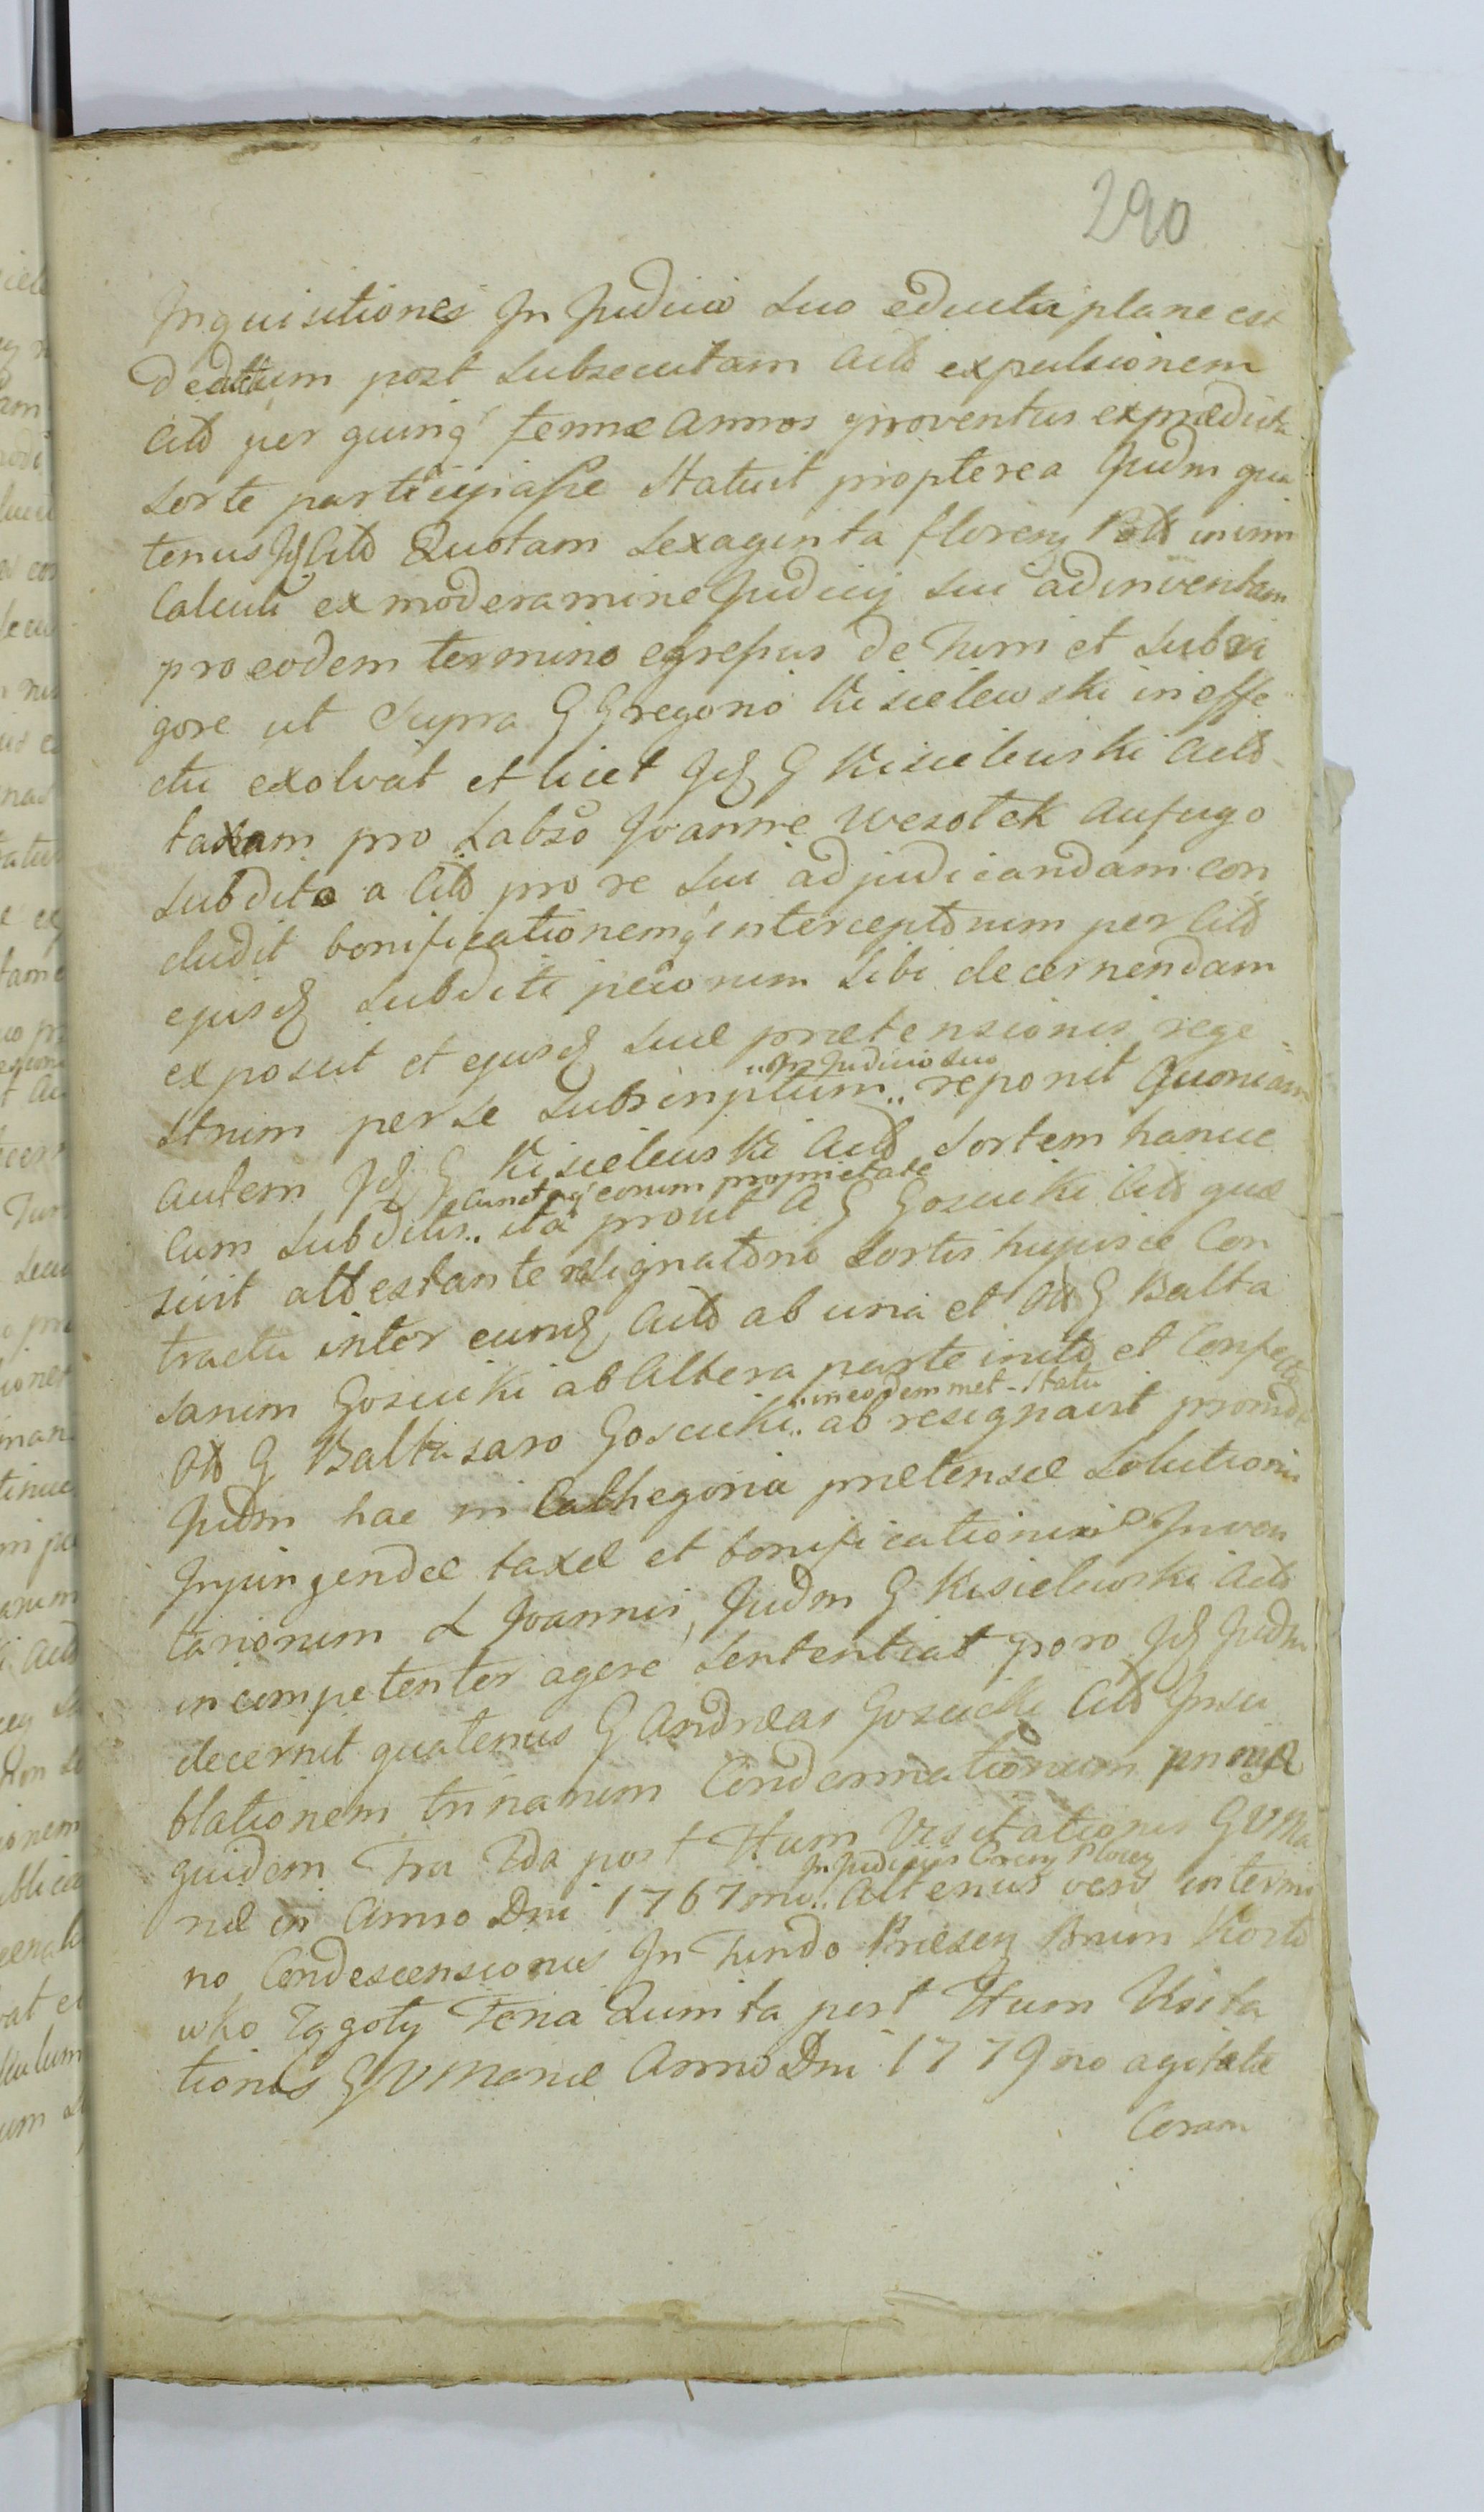 290
Inquisitiones In Judicio suo educta plane est
deductum post subsecutam Actō expulsionem
Citō per quinq´ ferme Annos proventus ex prædicta
sorte participasse Statuit propterea Judm qua
tenus Citō Quotam sexaginta floreny Polō in vim
Calculi ex moderamine Judicij sui adinventam
pro eodem termino egressus de Turri et sub ri
gore ut supra G Gregorio Kisielewski in effe
ctu exolvat et licet Jd G Kisielewski Actō
taxam pro Labso Joanne Wesołek aufugo
subdito a Citō pro re sui adjudicandam con
cludit bonificationemq´ interceptōrum per Citō
ejusd subditi pecorum sibi decernendam
exposcit et ejusd suæ prætensionis rege
strum per se subscriptum .. In Judicio suo .. reponit Quoniam
autem Jd G Kisielewski Actō sortem hance
Cum subditis .. cunctaq´ eorum proprietate .. ita prout A G Goscicki Citō quæ
sivit attestante resignatōno sortis hujusce Con
tractu inter eund Actō ab una et Otō G Balta
sarum Goscicki ab Altera parte initō et Confecto
Otō G Baltasaro Goscicki .. in eodemmet statu .. ab resignavit proinde
Judm hac in Cathegoria prætensæ solutionis
Injungendæ taxæ et bonificationis Inven
tariorum L Joannis, Judm G Kisielewski Actō
incompetenter agere sententiat porro Jd Judm
decernit quatenus G Andreas Goscicki Citō Insu
blationem trinarum Condemnationum primæ
quidem Fra 2da post Ftum Visitationis G V Ma
riæ in Anno Dni 1767mo .. In Judicijs Cren Plocen .. Alterius vero in termi
no Condescensionis In Fundo Præsen Bnum Korto
wko Zagoty Feria Quinta post Ftum Visita
tionis G V Mariæ Anno Dni 1779no agitatæ
Coram